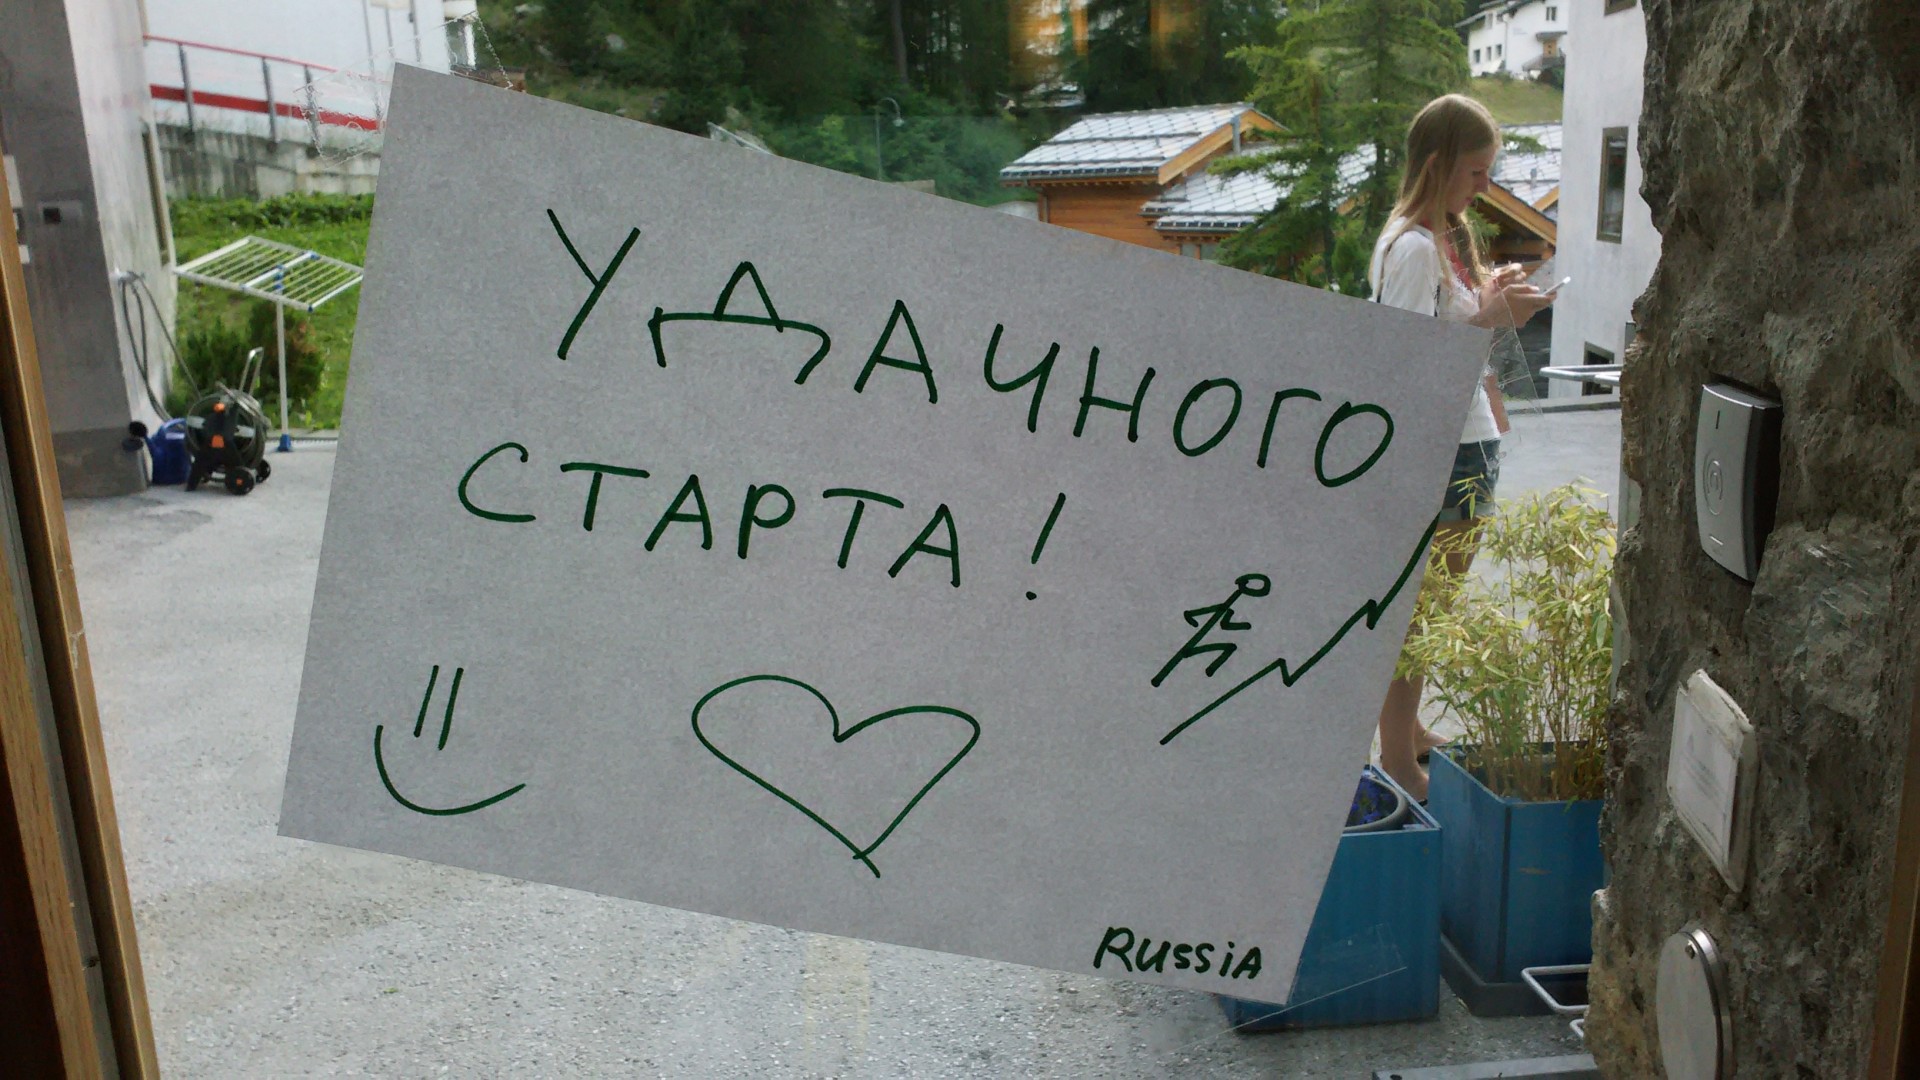 УДАЧНОГО
СТАРТА!
RUSSiA